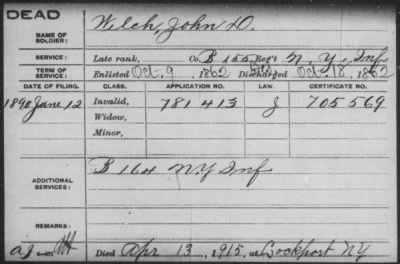 DEAD
NAME OF SOLDIER: Welch, John D.
SERVICE: Late rank, Co. B 155 Reg't N. Y. Inf
TERM OF SERVICE: Enlisted Oct. 9, 1862 Discharged Oct. 18, 1862
DATE OF FILING. CLASS. APPLICATION NO. LAW. CERTIFICATE NO.
1890 June 12 Invalid, 781 413 J 705 569
Widow,
Minor,
ADDITIONAL SERVICES: B 164 N.Y Inf
REMARKS:
Died Apr 13, 1915, at Lockport NY